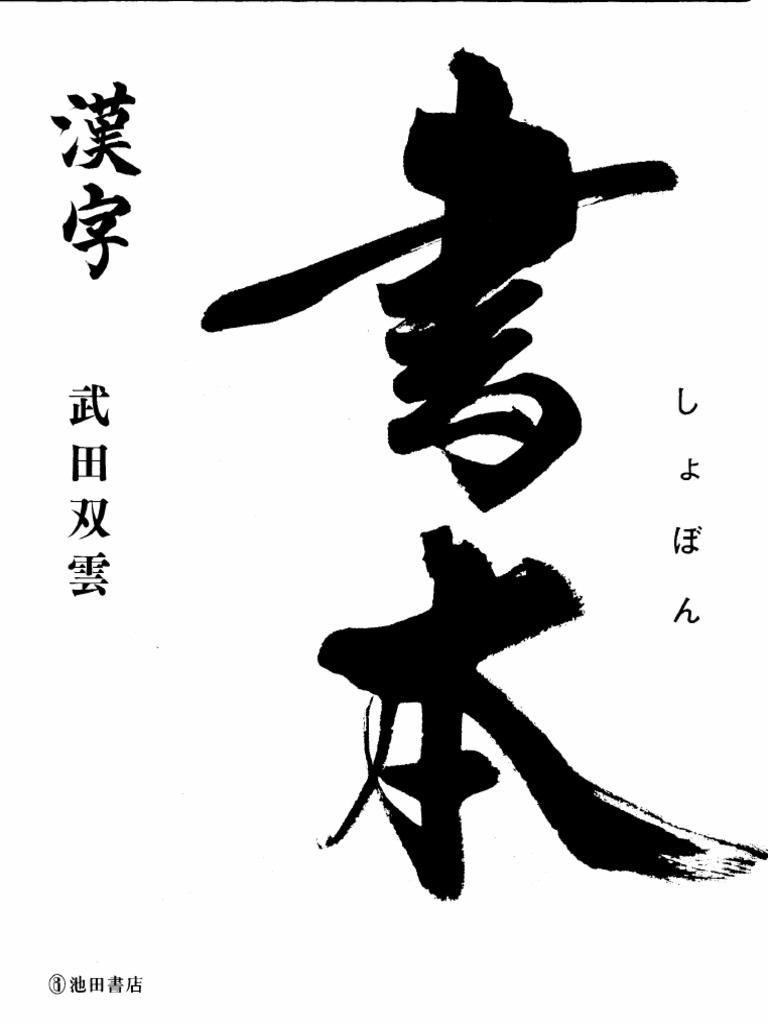 書本
しょぼん
漢字
武田双雲
池田書店